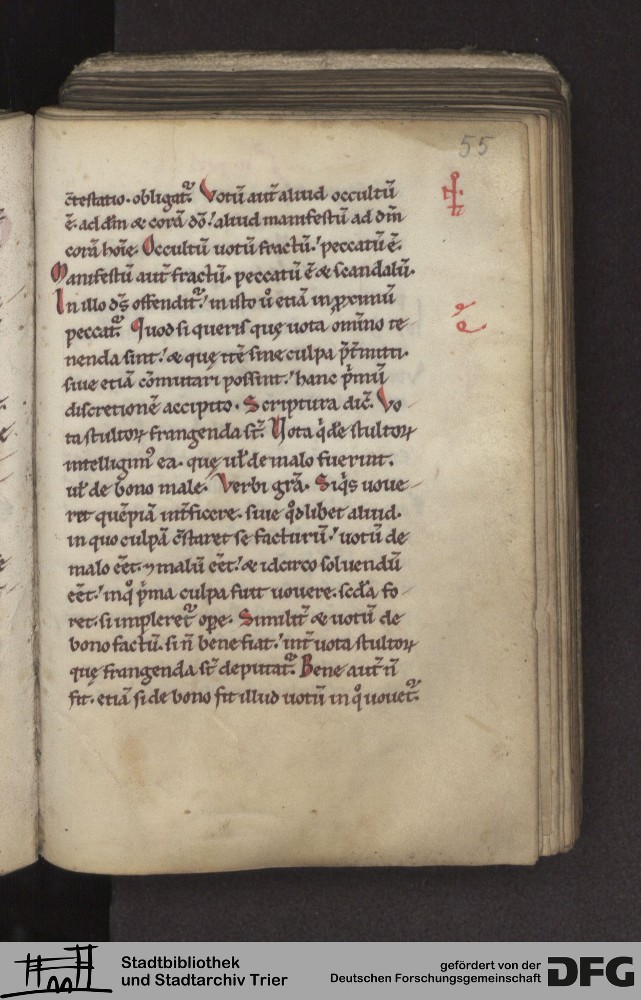 55
c̄testatio. obligat᷑. Votū aut̄ aliud occultū
ē. ad dm̄ & corā dō. aliud manifestū ad dm̄
corā hoīe. Occultū uotū fractū. peccatū ē.
Manifestū aut̄ fractū. peccatū ē & scandalū.
In illo ds̄ offendit᷑. in isto u̇o etiā in ꝓximū
peccat᷑. Quod si queris quę uota om̄ino te
nenda sint. & quę it̄e sine culpa p̄t̄mitti.
siue etiā cōmutari possint. hanc p̄mū
discretionē accipito. Scriptura dic̄. Vo
ta stultoꝝ frangenda st̄. Uota q̇de stultoꝝ
intelligim᷒ ea. quę ul̄ de malo fuerint.
ul̄ de bono male. Verbi grā. Siq̇s uoue
ret quēpiā int̄ficere. siue qd̄libet aliud.
in quo culpā c̄staret se facturū. uotū de
malo eēt. ⁊ malū eēt. & idcirco soluendū
eēt. in qͦ p̄ma culpa fuit uouere. scd̄a fo
ret. si impleret᷑ oꝑe. Similit̄ & uotū de
bono factū. si n̄ bene fiat. int̄ uota stultoꝝ
quę frangenda st̄ deputat᷑. Bene aut̄ n̄
fit. etiā si de bono fit illud uotū in qͦ uouet᷑.
Stadtbibliothek
und Stadtarchiv Trier
gefördert von der
Deutschen Forschungsgemeinschaft
DFG